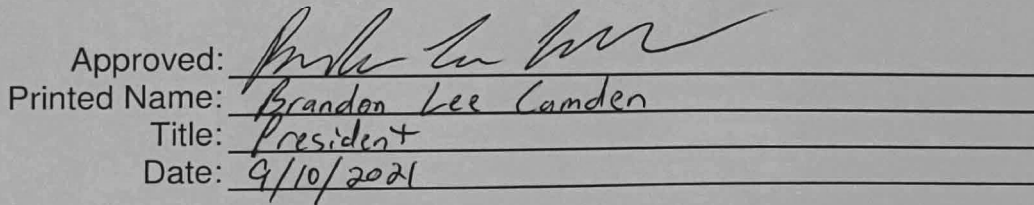 Approved:
Printed Name: Brandon Lee Camden
Title: President
Date: 9/10/2021